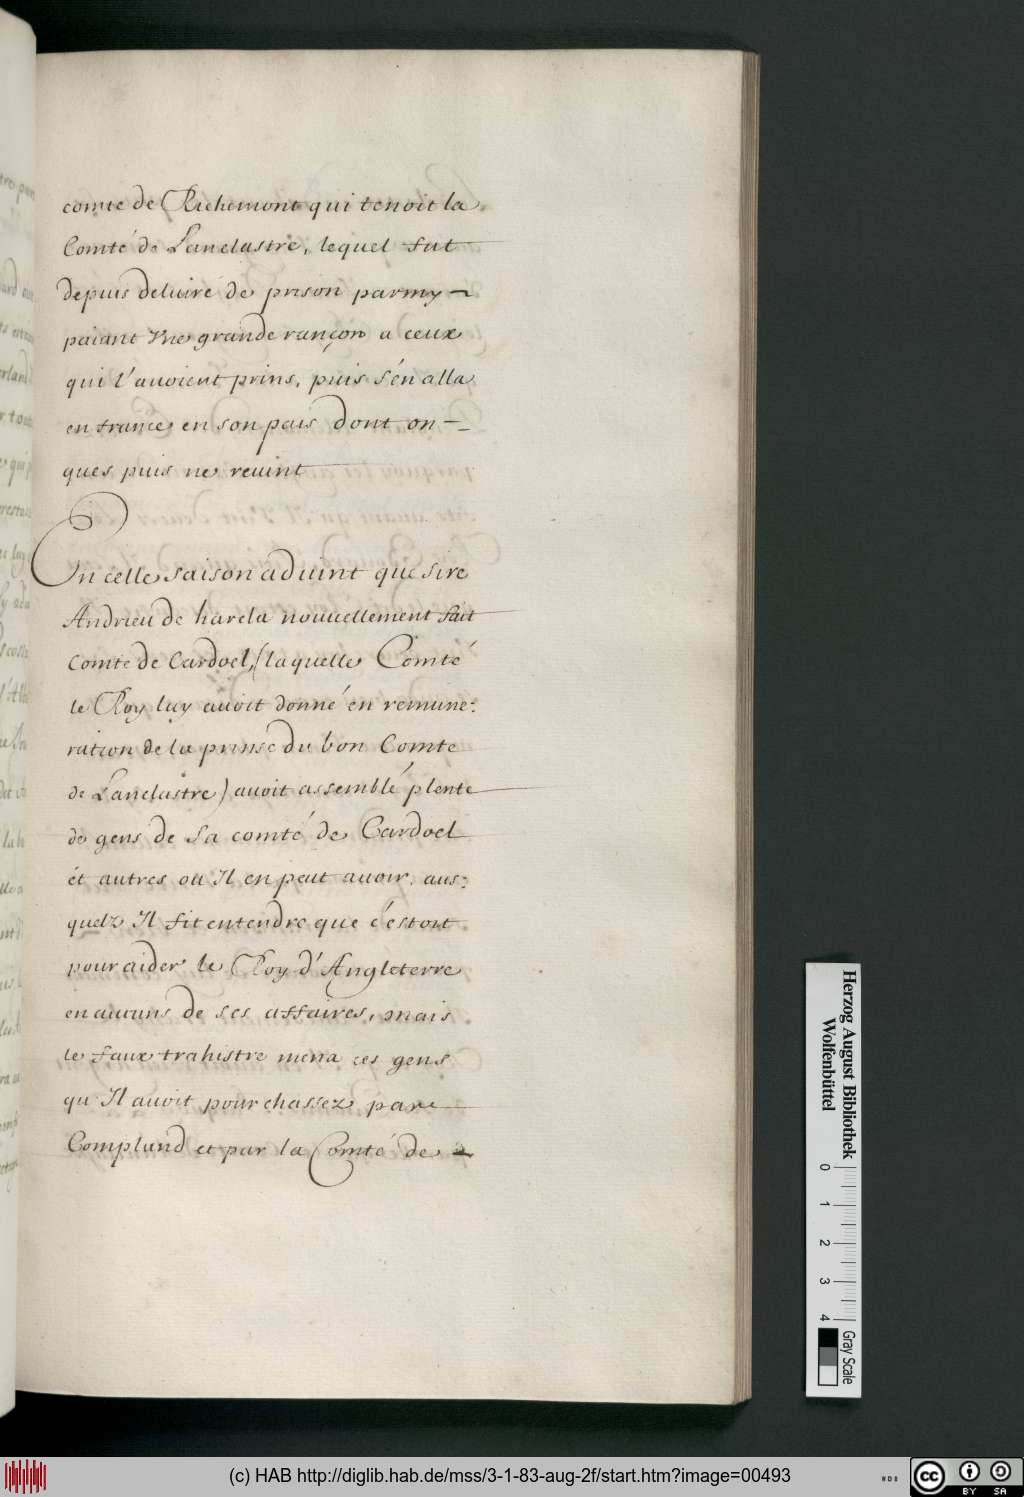 comte de Richemont qui tenoit la
Comté de Lanclastre, lequel fut
depuis deliuré de prison parmy
paiant vne grande rançon a ceux
qui l'auoient prins, puis s'en alla
en france en son pais dont on-
ques puis ne reuint
En celle saison aduint que sire
Andrieu de harcla nouuellement fait
Comte de Cardoel, (laquelle Comté
le Roy luy auoit donné en remune:
ration de la prinse du bon Comte
de Lanclastre) auoit assemblé plente
de gens de sa comté de Cardoel
et autres ou Il en peut auoir, aus:
quelz Il fit entendre que c'estoit
pour aider le Roy d'Angleterre
en aucuns de ses affaires, mais
le faux trahistre mena ces gens
qu'Il auoit pourchassez par
Compland et par la Comté de
Herzog August Bibliothek
Wolfenbüttel
0 1 2 3 4
Gray Scale
(c) HAB http://diglib.hab.de/mss/3-1-83-aug-2f/start.htm?image=00493
cc BY SA